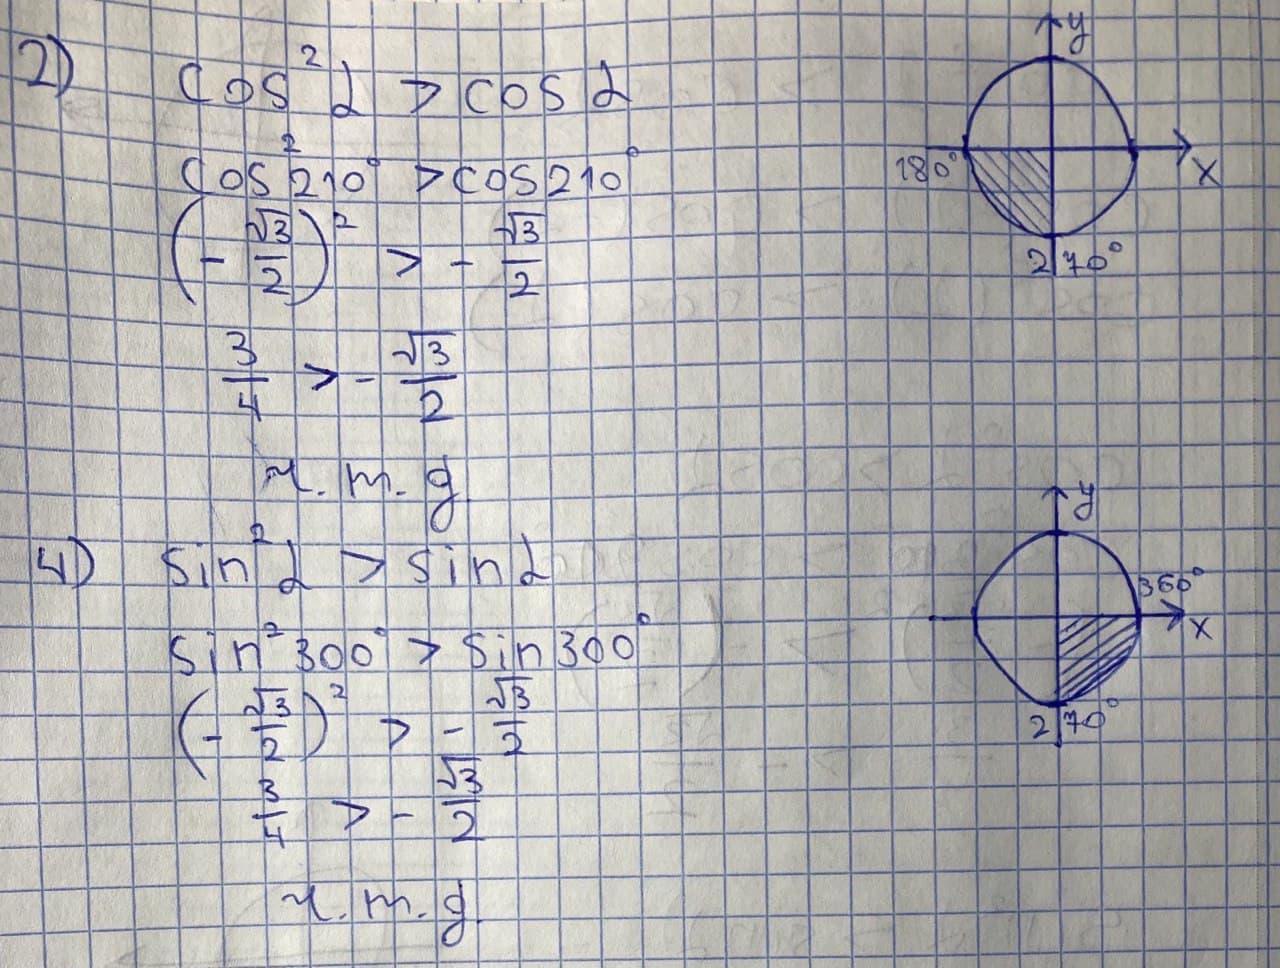 2) cos²α > cosα
cos²210° > cos210°
(-√3/2)² > -√3/2
3/4 > -√3/2
ч.т.д.
y
180°
x
270°
4) sin²α > sinα
sin²300° > sin300°
(-√3/2)² > -√3/2
3/4 > -√3/2
ч.т.д.
y
360°
x
270°